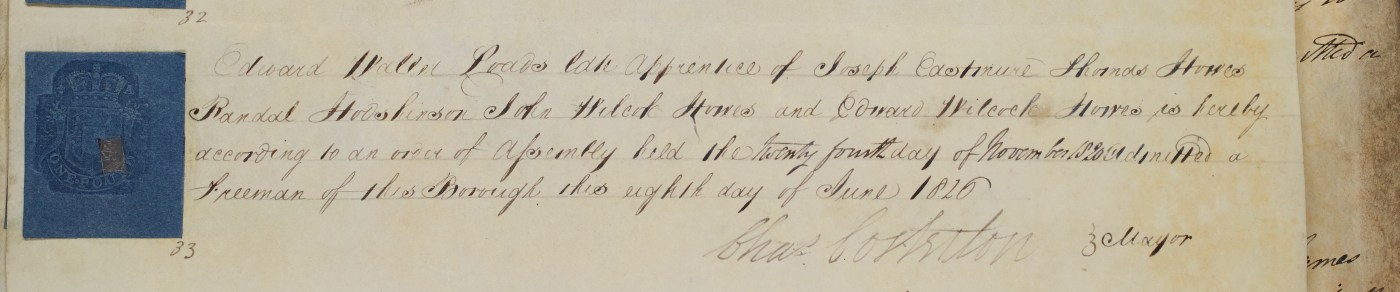 32
Edward Walin Loads late Apprentice of Joseph Eastmure Thomas Howes
Randal Hodskinson John Wilcok Howes and Edward Wilcock Howes is hereby
according to an order of Assembly held the twenty fourth day of November 1820 admitted a
Freeman of this Borough this eighth day of June 1826
Chas. Costerton } Mayor
33
ONE POUND
tted a
mes